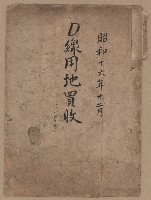 昭和十六年十二月
D線用地買收